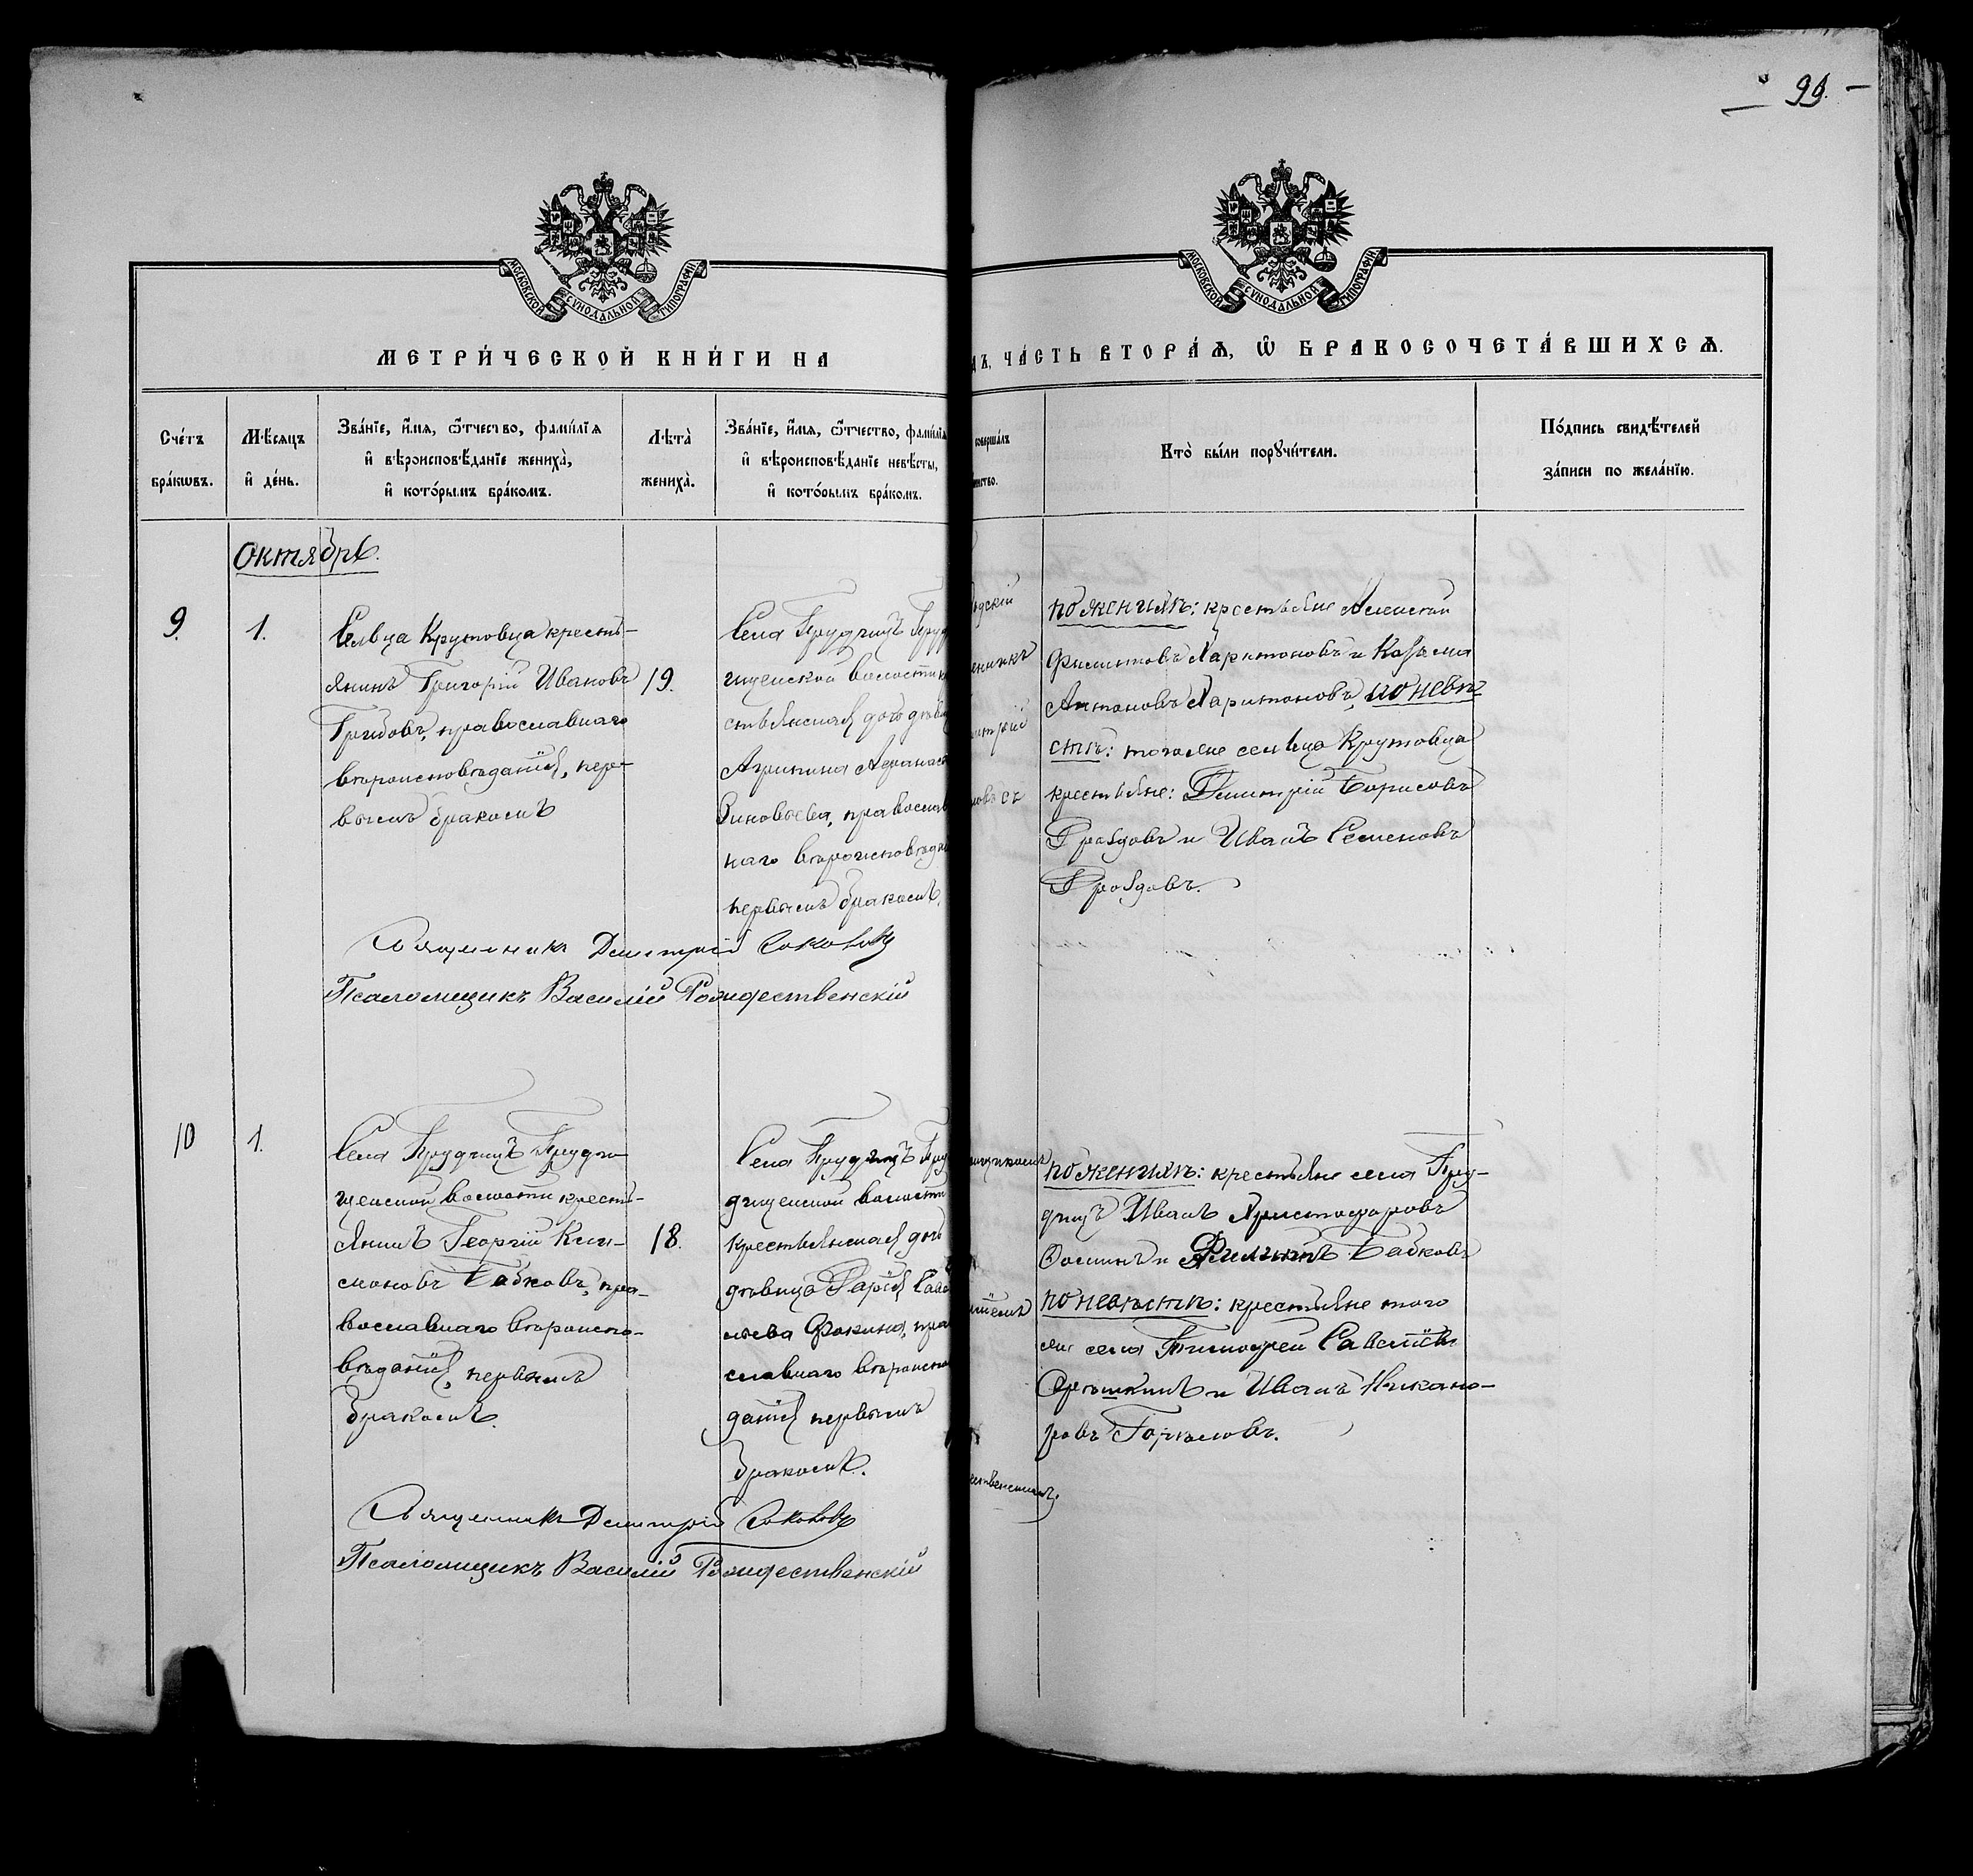 99.
МОСКОВСКОЙ СѴНОДАЛЬНОЙ ТИПОГРАФІИ
МОСКОВСКОЙ СѴНОДАЛЬНОЙ ТИПОГРАФІИ
МЕТРИ́ЧЕСКОЙ КНИ́ГИ НА
ЧА́СТЬ ВТОРА́Ѧ, Ѽ БРАКОСОЧЕТА́ВШИХСѦ.
Сче́тъ
бра́кωвъ.
Мѣ́сяцъ
и҆ де́нь.
Зва́нїе, и҆́мя, ѻ҆́тчество, фами́лїя
и҆ вѣроисповѣ́данїе жениха̀,
и҆ кото́рымъ бра́комъ.
Лѣта̀
жениха̀.
Зва́нїе, и҆́мя, ѻ҆́тчество, фами́лїя
и҆ вѣроисповѣ́данїе невѣ́сты,
и҆ кото́рымъ бра́комъ.
совершалъ
Кто̀ бы́ли порꙋчи́тели.
По́дпись свидѣ́телей
за́писи по жела́нїю.
Октябрь.
9.
1.
Сельца Крутовца кресть-
янинъ Григорій Ивановъ
Гроздовъ, православнаго
вѣроисповѣданія, пер-
вымъ бракомъ
19.
Села Прудищъ Пруд
щенской волости
Агрипина Афанас
Зиновьева, православ
наго вѣроисповѣда
первымъ бракомъ.
по женихѣ: крестьяне Алексѣй
Филиповъ Харитоновъ и Козьма
Антоновъ Харитоновъ, по невѣ-
стѣ: тогоже сельца Крутовца
крестьяне: Димитрій Борисовъ
Гроздовъ и Иванъ Семеновъ
Гроздовъ.
Священникъ Димитрій Соколовъ
Псаломщикъ Василій Рождественскій
10
1.
Села Прудищъ Пруди-
щенской волости кресть-
янинъ Георгій Кли-
моновъ Бабковъ, пра-
вославнаго вѣроиспо-
вѣданія, первымъ
бракомъ.
18.
Села Прудищъ Пру
дищенской волости
крестьянская дочь
дѣвица Дарія Саве
льева Фокина, пра
славнаго вѣроиспо
данія первымъ
бракомъ.
по женихѣ: крестьяне села Пру-
дищъ Иванъ Христофоровъ
Фоминъ и Филиппъ Бабковъ
по невѣстѣ: крестьяне того
же села Тимофей Савелiевъ
Орѣшкинъ и Иванъ Никано-
ровъ Горчаковъ.
Священникъ Димитрій Соколовъ
Псаломщикъ Василій Рождественскій